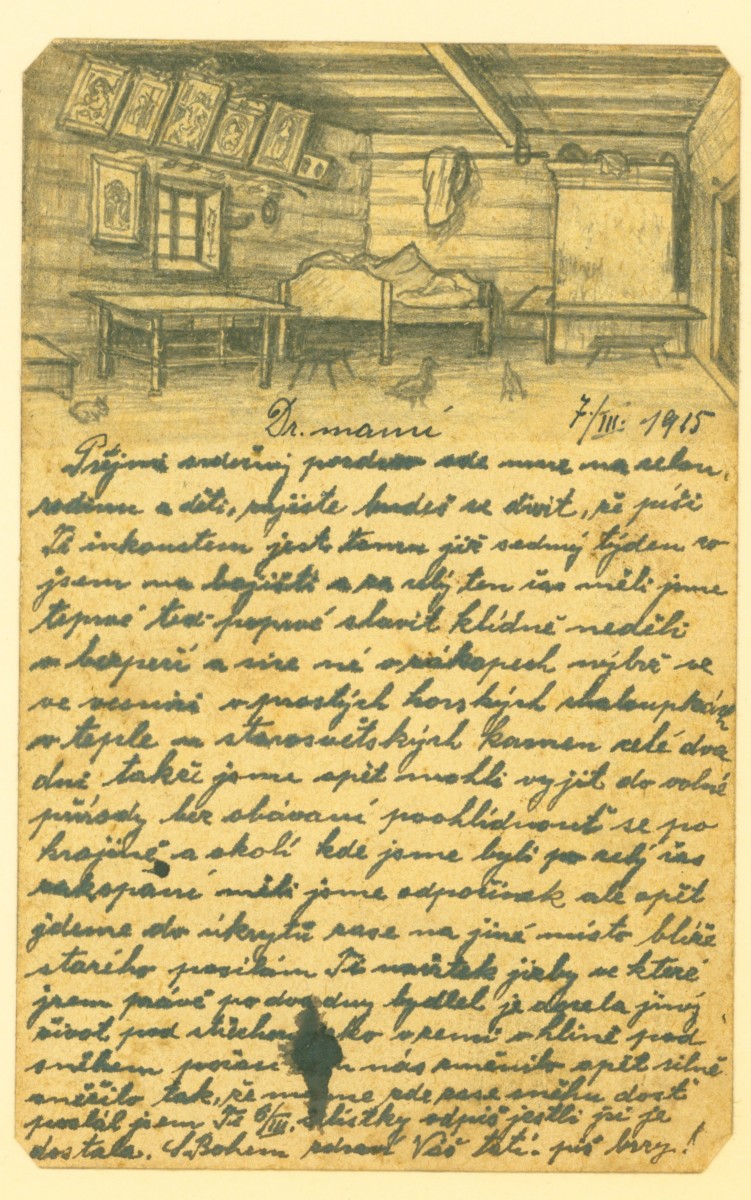 Dr. mamí 7./III. 1915
Přijmi srdečný pozdrav ode mne na celou
rodinu a děti, zajiste budeš se divit, že píši
Ti inkoustem jest tomu již sedmý týden co
jsem na bojišti a za celý ten čas měli jsme
teprvé teď poprvé slavit klidně neděli
v bezpečí a sice né v zákopech nýbrž ve
ve vesnici v prostých horských chaloupkách
v teple u starosvětských kamen celé dva
dni takže jsme opět mohli vyjít do volné
přírody bez obávaní poohlédnoutí se po
krajině a okolí kde jsme byli po celý čas
zakopaní měli jsme odpočinek ale opět
jdeme do úkrytů zase na jiné místo blíže
starého posílám Ti náčrtek jizby ve které
jsem právě po dva dny bydlel je docela jiný
život pod střechou jako v zemi v hlíně pod
sněhem počasí u nás změnilo opět silně
sněžilo tak, že máme zde zase sněhu dosti
poslal jsem Ti 6/III. lístky odpiš jestli jsi je
dostala. S Bohem zdraví Váš tatí. piš brzy!